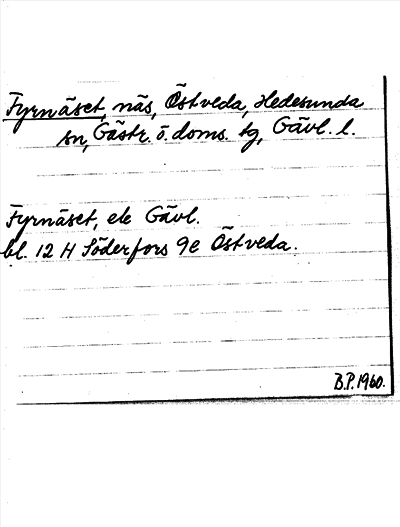 Fyrnäset, näs, Östveda, Hedesunda
sn, Gästr. ö. doms. tg, Gävl. l.
Fyrnäset, ek Gävl.
bl. 12 H Söderfors 9e Östveda.
B.P. 1960.